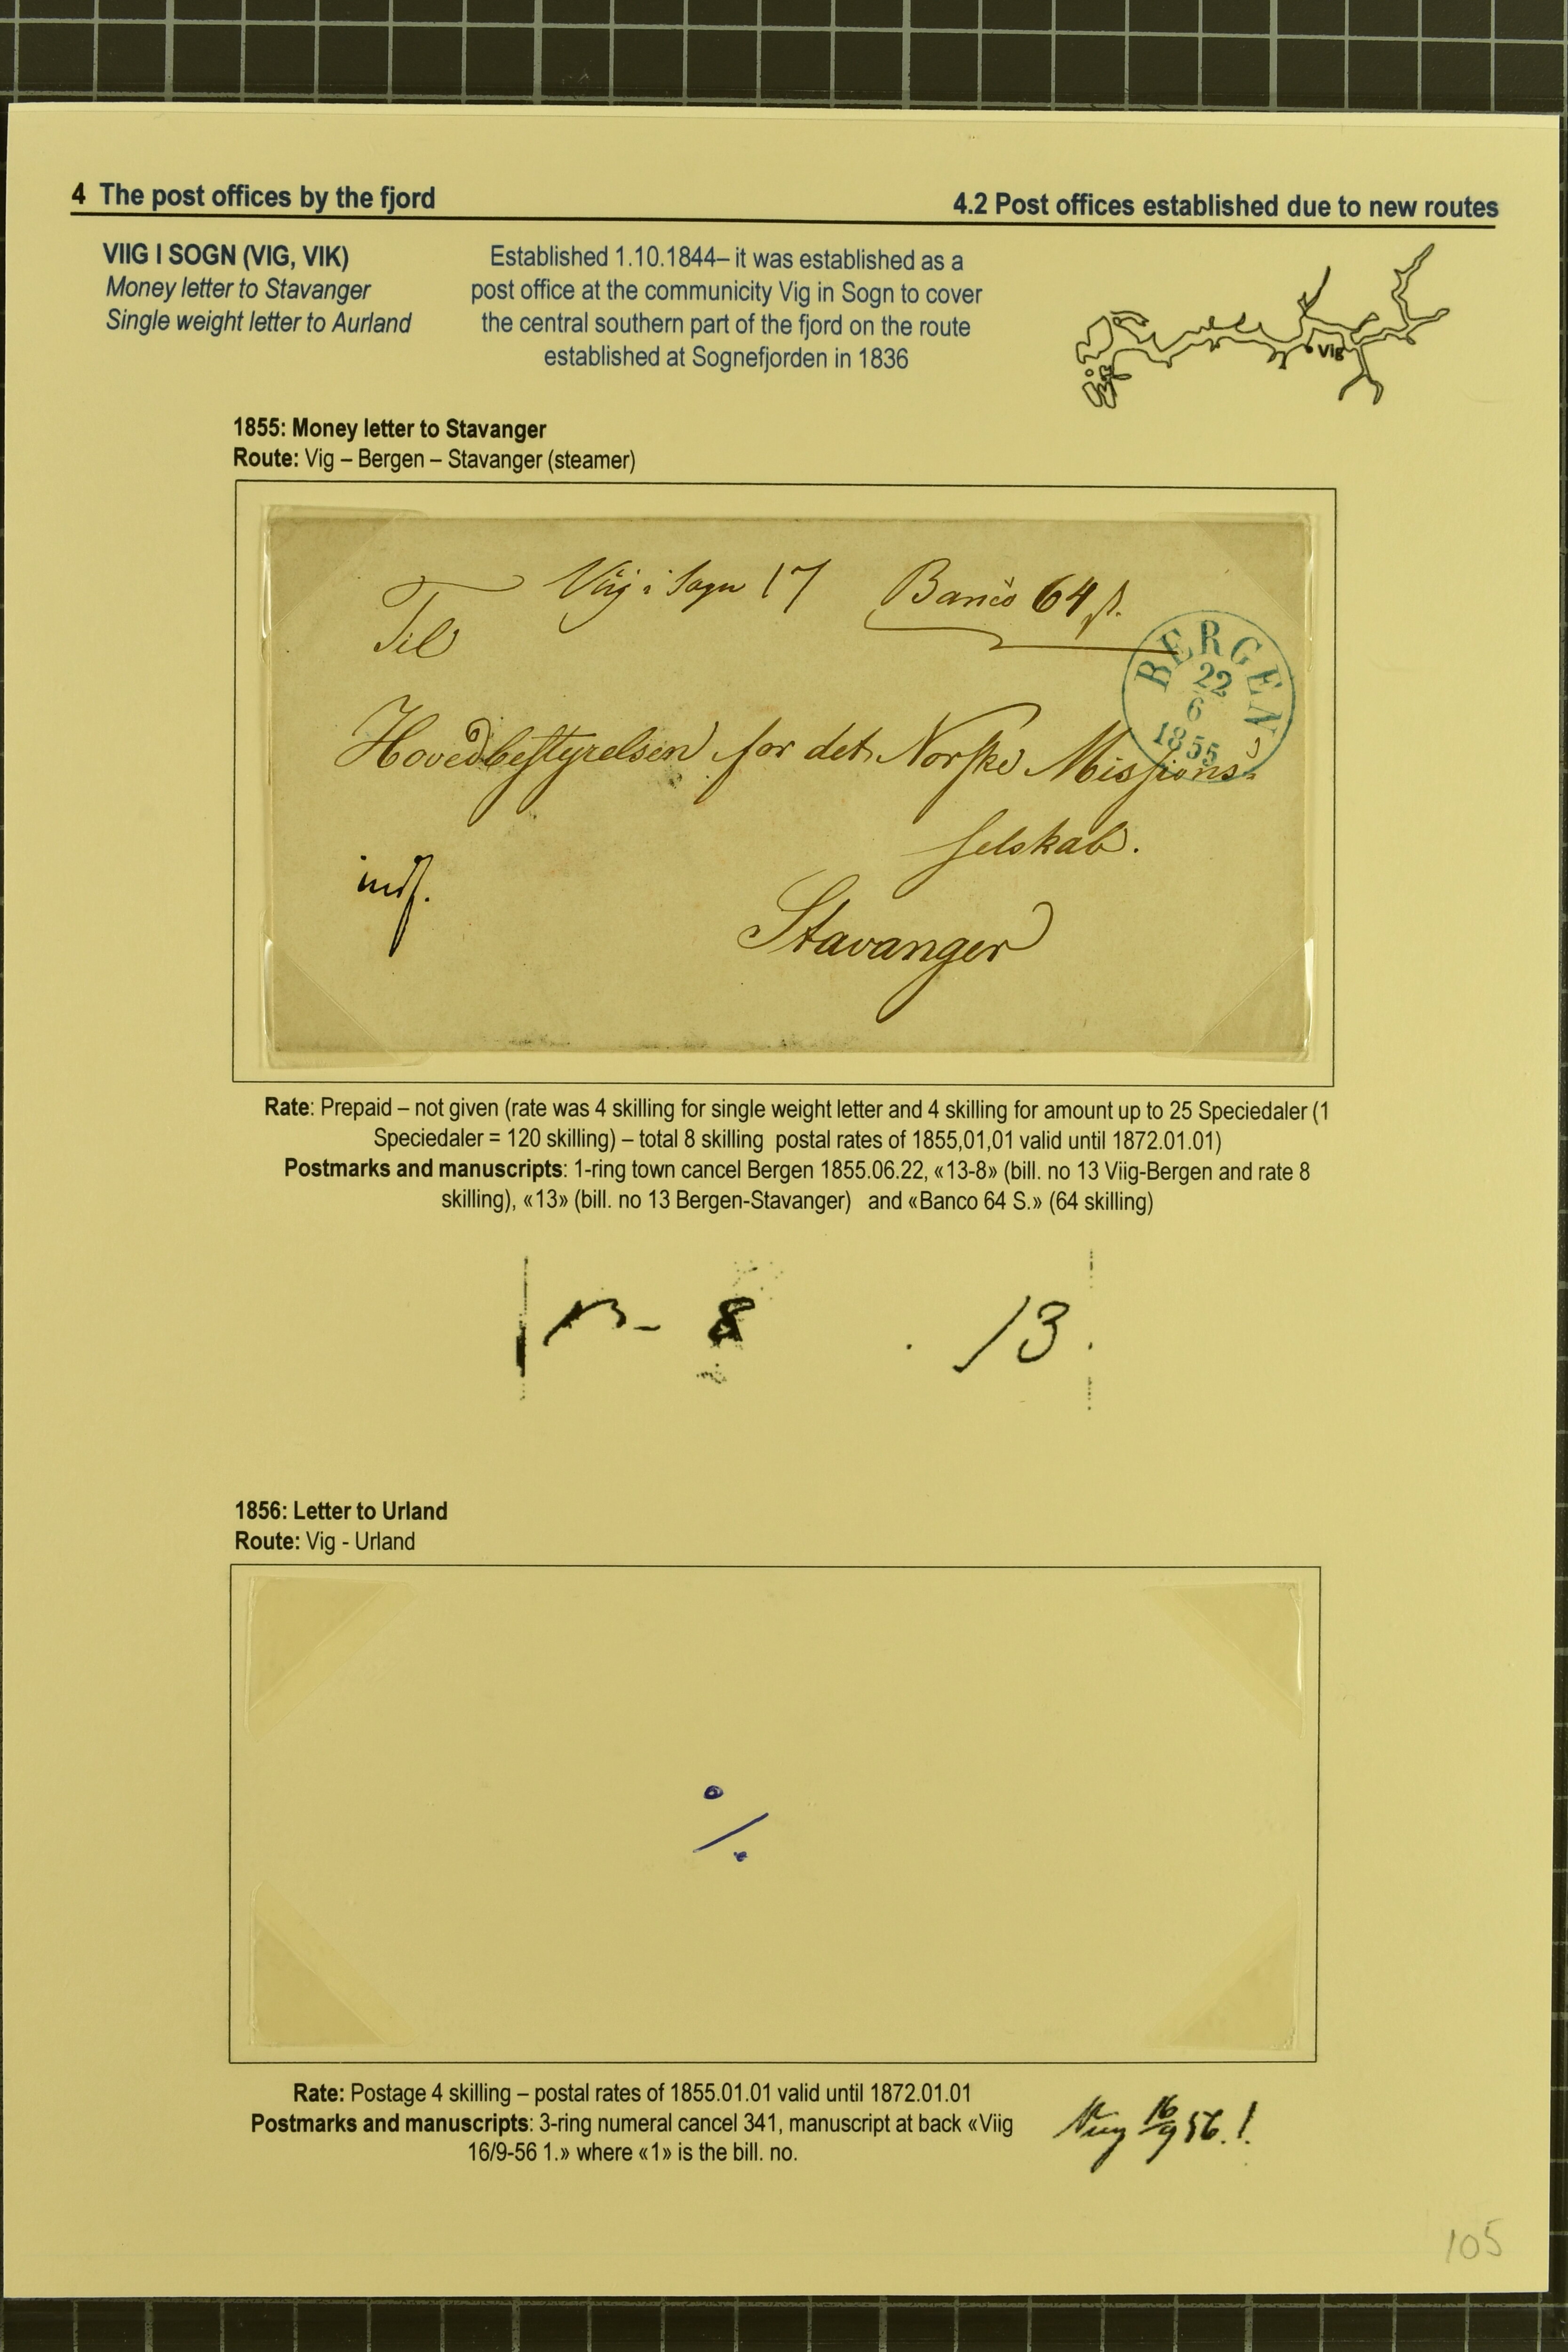 4 The post offices by the fjord
4.2 Post offices established due to new routes
VIIG I SOGN (VIG, VIK)
Money letter to Stavanger
Single weight letter to Aurland
Established 1.10.1844– it was established as a
post office at the communicity Vig in Sogn to cover
the central southern part of the fjord on the route
established at Sognefjorden in 1836
Vig
1855: Money letter to Stavanger
Route: Vig – Bergen – Stavanger (steamer)
Viig i Sogn 17 Banco 64 s.
Til
BERGEN
22
6
1855
Hovedbestyrelsen for det Norske Missions-
selskab.
Stavanger
Rate: Prepaid – not given (rate was 4 skilling for single weight letter and 4 skilling for amount up to 25 Speciedaler (1
Speciedaler = 120 skilling) – total 8 skilling postal rates of 1855,01,01 valid until 1872.01.01)
Postmarks and manuscripts: 1-ring town cancel Bergen 1855.06.22, «13-8» (bill. no 13 Viig-Bergen and rate 8
skilling), «13» (bill. no 13 Bergen-Stavanger) and «Banco 64 S.» (64 skilling)
13- 8 13.
1856: Letter to Urland
Route: Vig - Urland
%
Rate: Postage 4 skilling – postal rates of 1855.01.01 valid until 1872.01.01
Postmarks and manuscripts: 3-ring numeral cancel 341, manuscript at back «Viig
16/9-56 1.» where «1» is the bill. no.
Viig 16/9 56. 1.
105